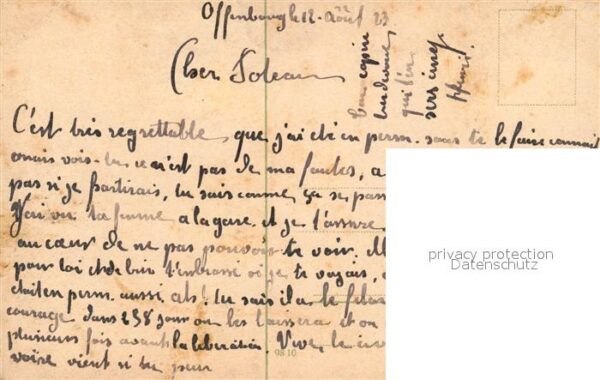 Offenbourg le 12 Août 23
Cher
Ton copain
qui t'en
Henri.
C'est très regrettable que j'ai été en perm. sans te le faire connait
mais vois-tu ce n'est pas de ma fautes, a
pas si je partirais, tu sais comme ça se pass
J'ai vu ta femme a la gare et je t'assure
au cœur de ne pas pouvoir te voir. M
pour toi et de bien t'embrasse si je te voyais,
était en perm. aussi, ah! tu sais il a le
courage dans 258 jours on les laissera et on
plusieurs fois avant la libération. Vive, le
voire vient si tu peu
0810
privacy protection
Datenschutz